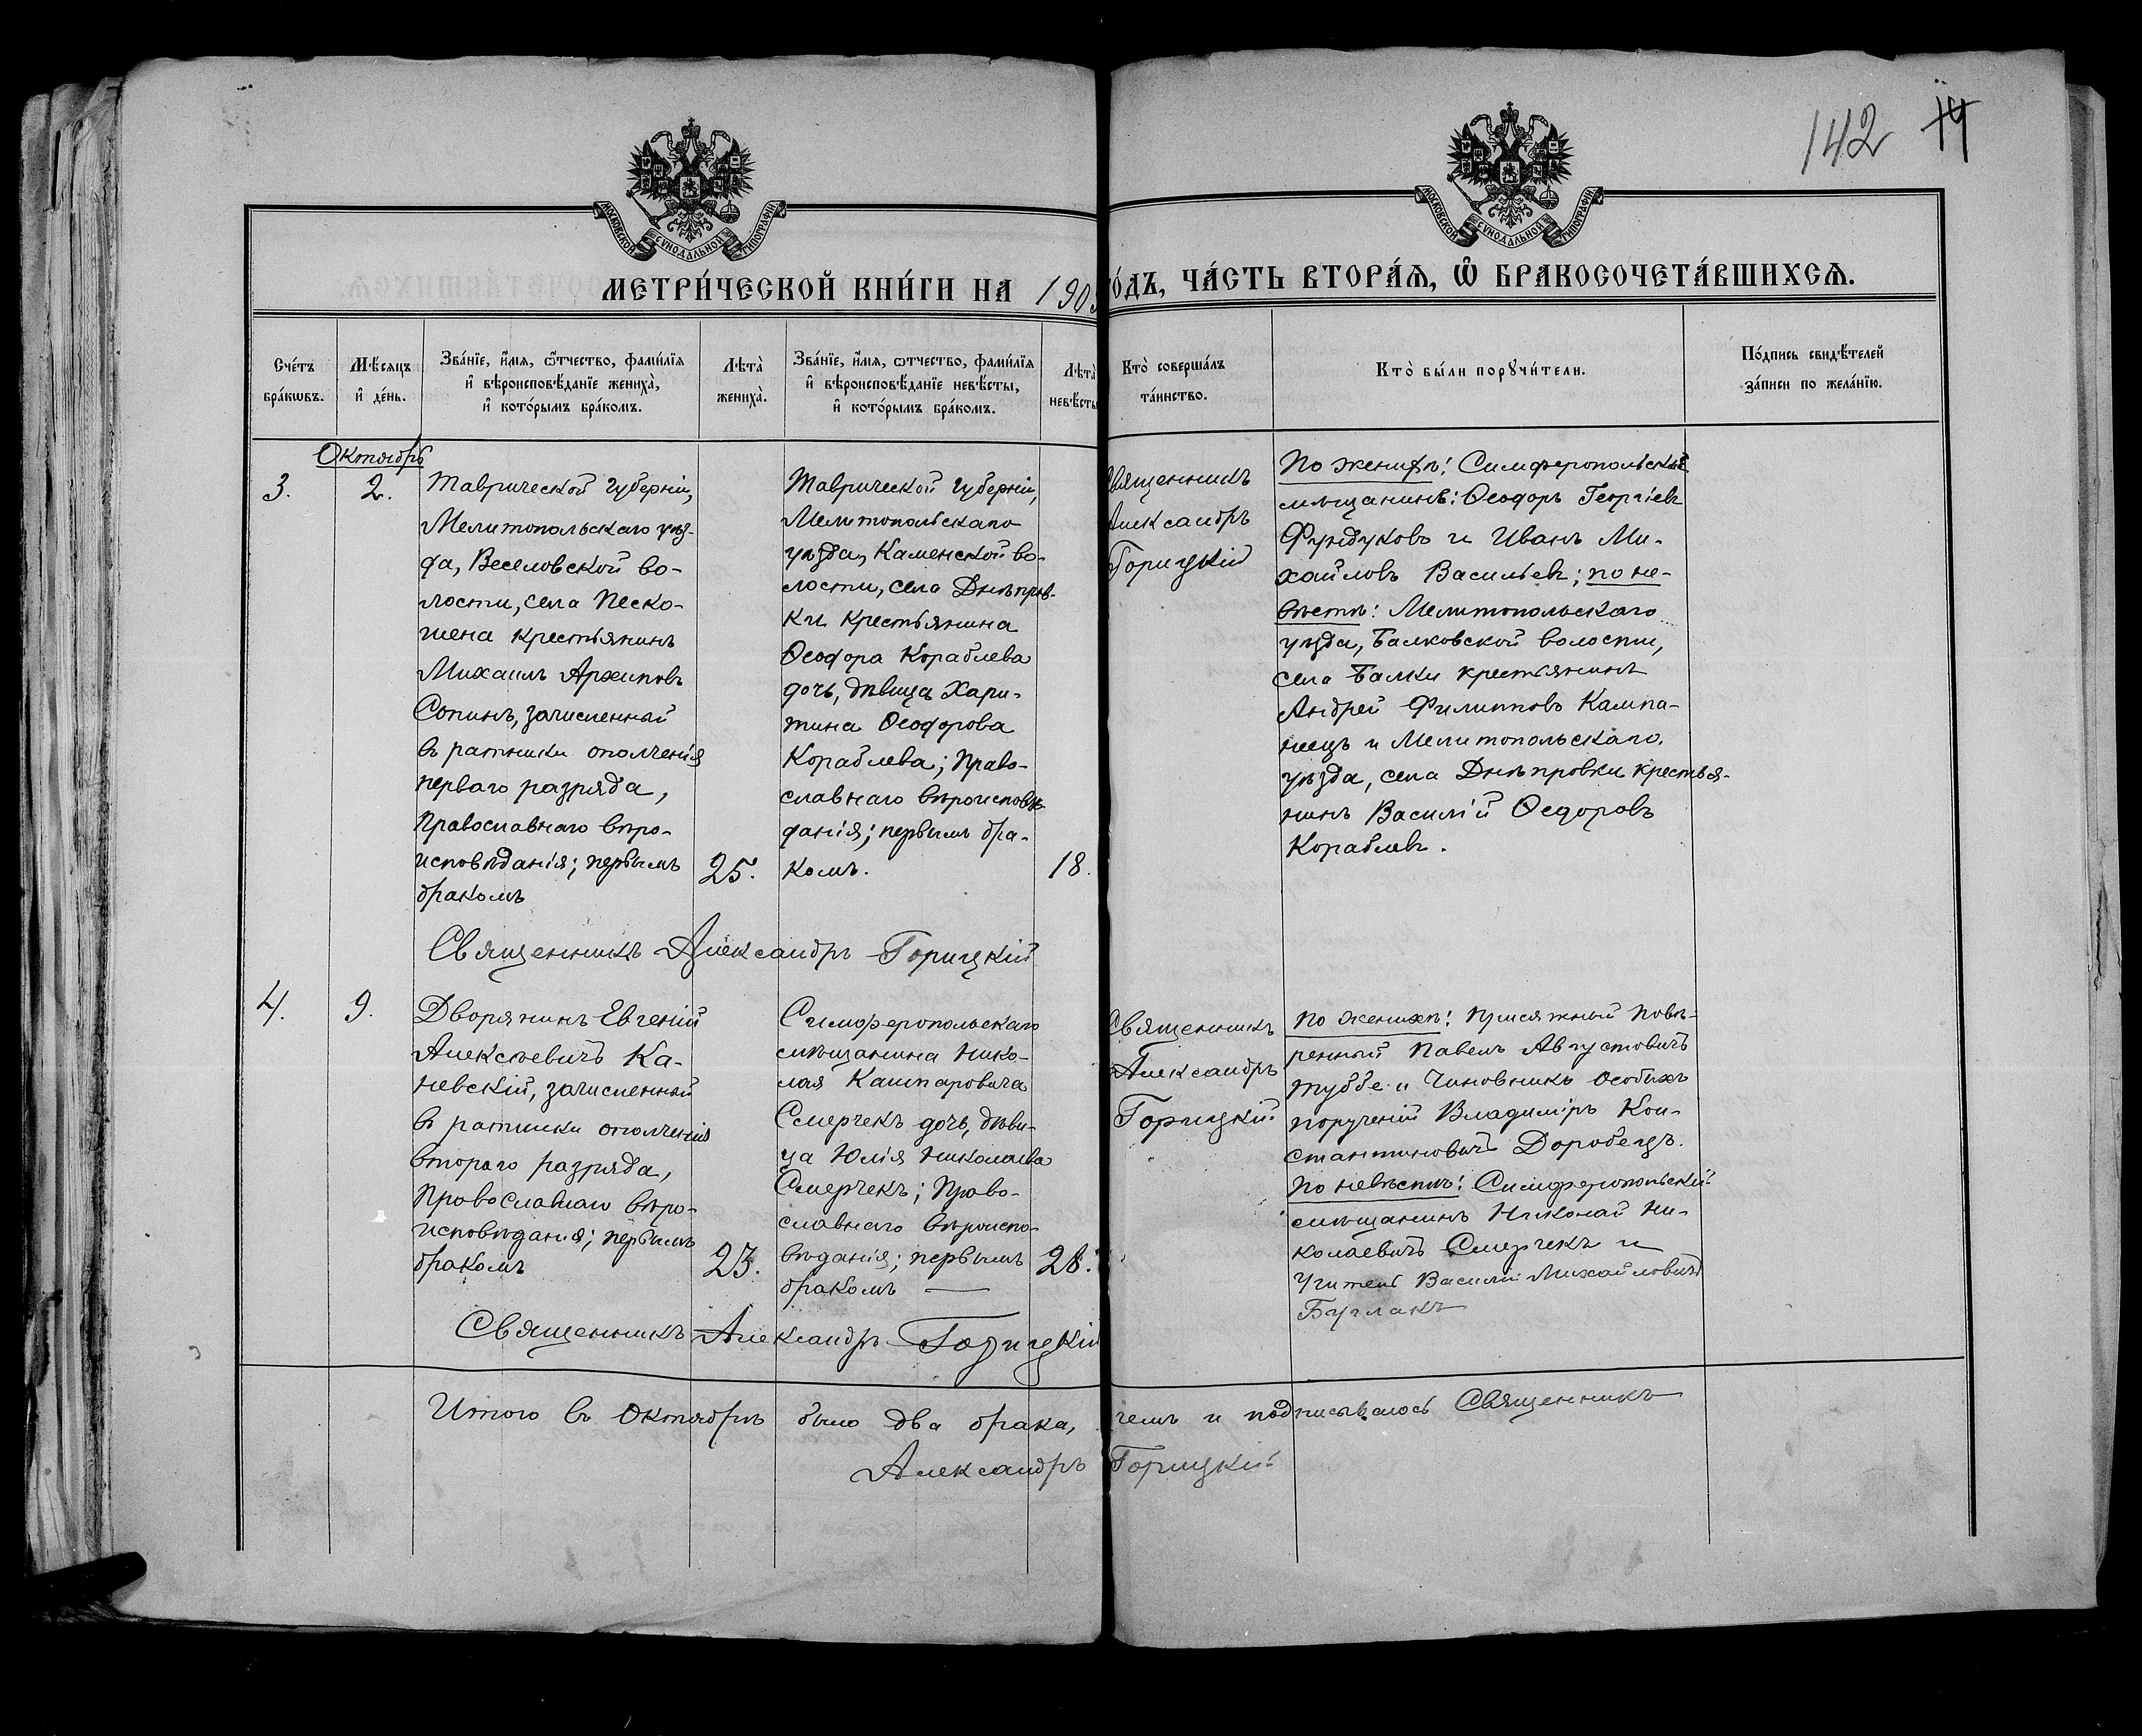 142 14
МОСКОВСКОЙ СѴНОДАЛЬНОЙ ТИПОГРАФІИ
МОСКОВСКОЙ СѴНОДАЛЬНОЙ ТИПОГРАФІИ
МЕТРИ́ЧЕСКОЙ КНИ́ГИ НА 190
О́ДЪ, ЧА́СТЬ ВТОРА́Я, Ѡ҆ БРАКОСОЧЕТА́ВШИХСѦ.
Сче́тъ
бра́кѡвъ.
Мѣ́сяцъ
и҆ де́нь.
Зва́нїе, и҆́мя, ѻ҆́тчество, фами́лїя
и҆ вѣроисповѣ́данїе жениха̀,
и҆ кото́рымъ бра́комъ.
Лѣта̀
жениха̀.
Зва́нїе, и҆́мя, ѻтчество, фами́лїя
и҆ вѣроисповѣ́данїе невѣ́сты,
и҆ кото́рымъ бра́комъ.
Лѣта̀
невѣ́сты
Кто̀ соверша́лъ
та́инство.
Кто̀ бы́ли порꙋчи́тели.
По́дпись свидѣ́телей
за́писи по жела́нїю.
Октябрь
3.
2.
Таврической губерніи,
Мелитопольскаго уѣз-
да, Веселовской во-
лости, села Песко-
шена крестьянинъ
Михаилъ Архиповъ
Сопинъ, зачисленный
въ ратники ополченія
перваго разряда,
Православнаго вѣро-
исповѣданія; первымъ
бракомъ
25.
Таврической губерніи,
Мелитопольскаго
уѣзда, Каменской во-
лости, села Днѣпров-
ки крестьянина
Ѳеодора Кораблева
дочь, дѣвица Хари-
тина Ѳеодорова
Кораблева; Право-
славнаго вѣроисповѣ-
данія; первымъ бра-
комъ.
18.
Священникъ
Александръ
Горицкій
По женихѣ: Симферопольскіе
мѣщанинъ: Ѳеодоръ Георгіевъ
Фундуковъ и Иванъ Ми-
хайловъ Васильевъ; по не-
вѣстѣ: Мелитопольскаго
уѣзда, Балковской волости,
села Балки крестьянинъ
Андрей Филипповъ Кампа-
неецъ и Мелитопольскаго
уѣзда, села Днѣпровки крестья-
нинъ Василій Ѳедоровъ
Кораблевъ.
Священникъ Александръ Горицкій
4.
9.
Дворянинъ Евгеній
Алексѣевичъ Ка-
невскій, зачисленный
въ ратники ополченія
второго разряда,
Православнаго вѣро-
исповѣданія; первымъ
бракомъ
23.
Симферопольскаго
мѣщанина Нико-
лая Кашпаровича
Смерчекъ дочь, дѣви-
ца Юлія Николаева
Смерчекъ; Право-
славнаго вѣроиспо-
вѣданія; первымъ
бракомъ —
28.
Священникъ
Александръ
Горицкій
По женихѣ: Присяжный повѣ-
ренный Павелъ Августовичъ
Туббе и Чиновникъ особыхъ
порученій Владиміръ Кон-
стантиновичъ Доробецъ.
По невѣстѣ: Симферопольскій
мѣщанинъ Николай Ни-
колаевичъ Смерчекъ и
Учитель Василій Михайловичъ
Бурлакъ
Священникъ Александръ Горицкій
Итого въ Октябрѣ было два брака, чемъ и подписываюсь Священникъ
Александръ Горицкій